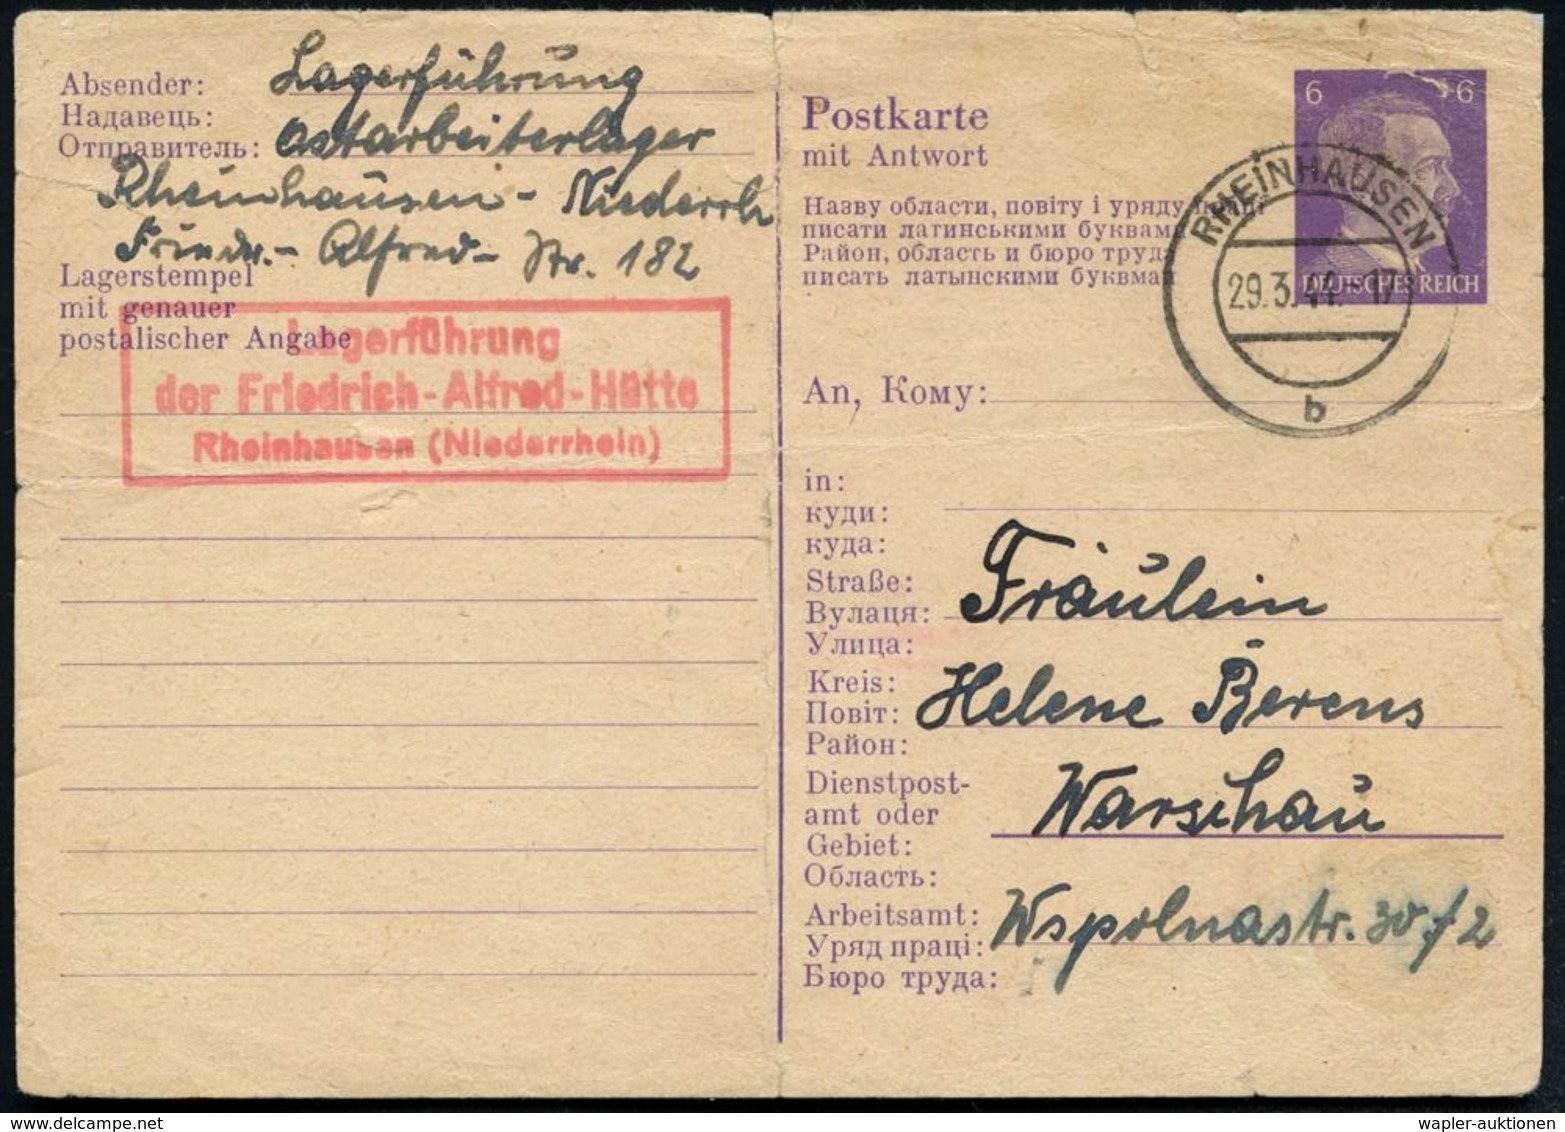 Absender: Lagerführung
Надавець:
Отправитель: Ostarbeiterlager
Rheinhausen - Niederrh
Friedr.- Alfred- Str. 182
Lagerstempel
mit genauer
postalischer Angabe
Lagerführung
der Friedrich-Alfred-Hütte
Rheinhausen (Niederrhein)
Postkarte
mit Antwort
Назву области, повіту і уряду праці
писати латинськими буквами
Район, область и бюро труда
писать латынскими буквмаи
6 +6
DEUTSCHES REICH
RHEINHAUSEN
29.3.44.-17
b
An, Кому:
in:
куди:
куда:
Straße: Fräulein
Вулаця:
Улица:
Kreis: Helene Berens
Повіт:
Район:
Dienstpost-
amt oder Warschau
Gebiet:
Область:
Arbeitsamt: Wspolnastr. 30/2
Уряд праці:
Бюро труда:
wapler-auktionen